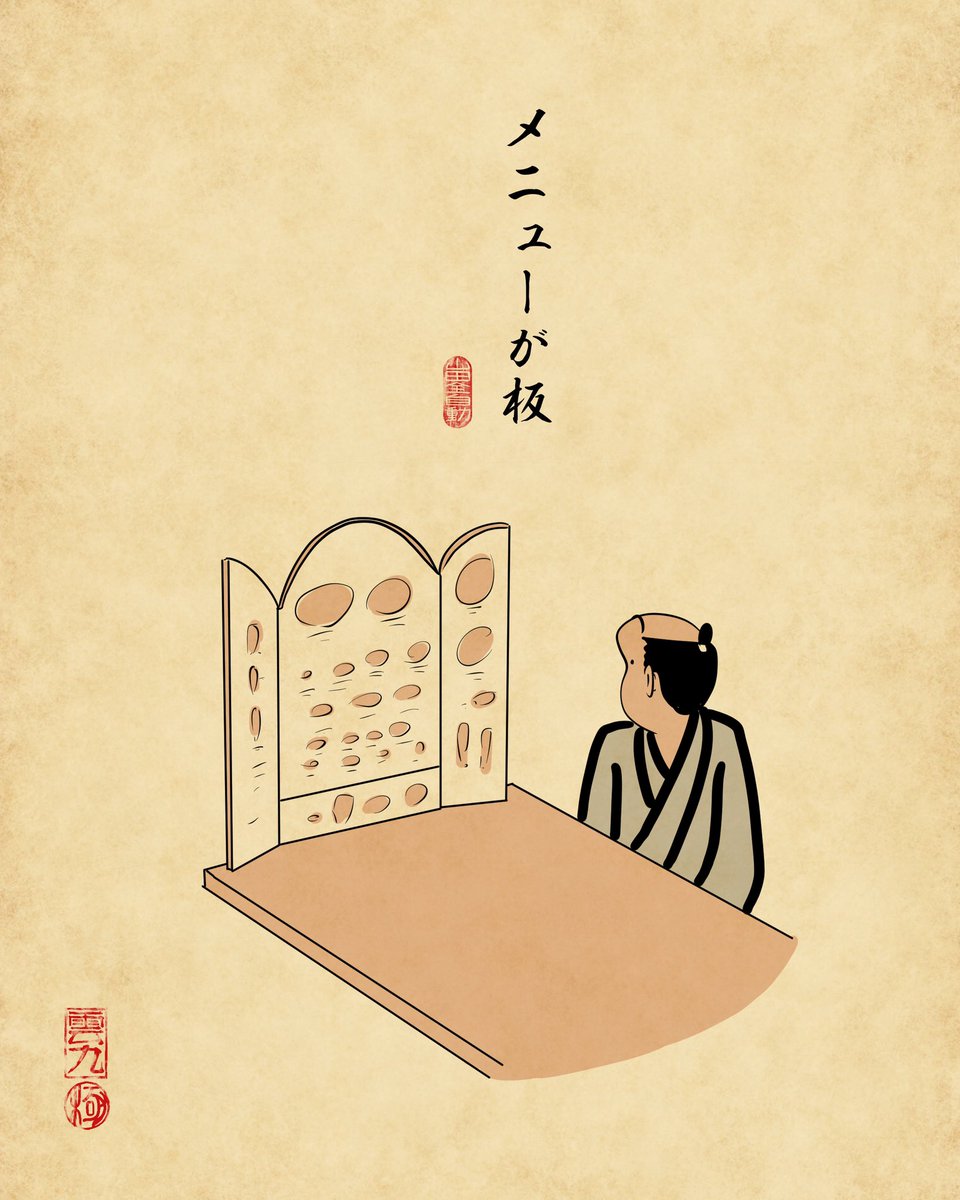 メニューが板